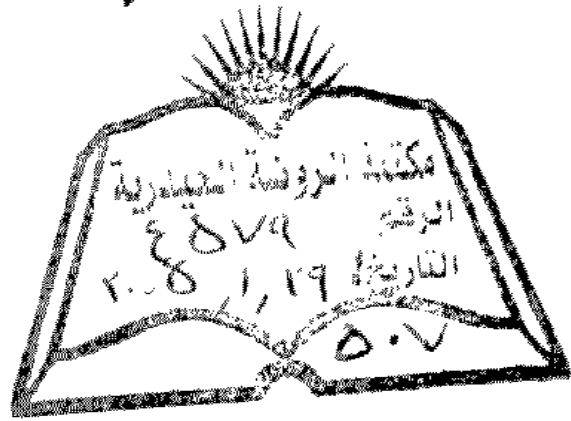 مكتبة الروضة الحيدرية
الرقم ٤٥٧٩
التاريخ ٢٩ / ١ / ٢٠٠٥
٥٠٧